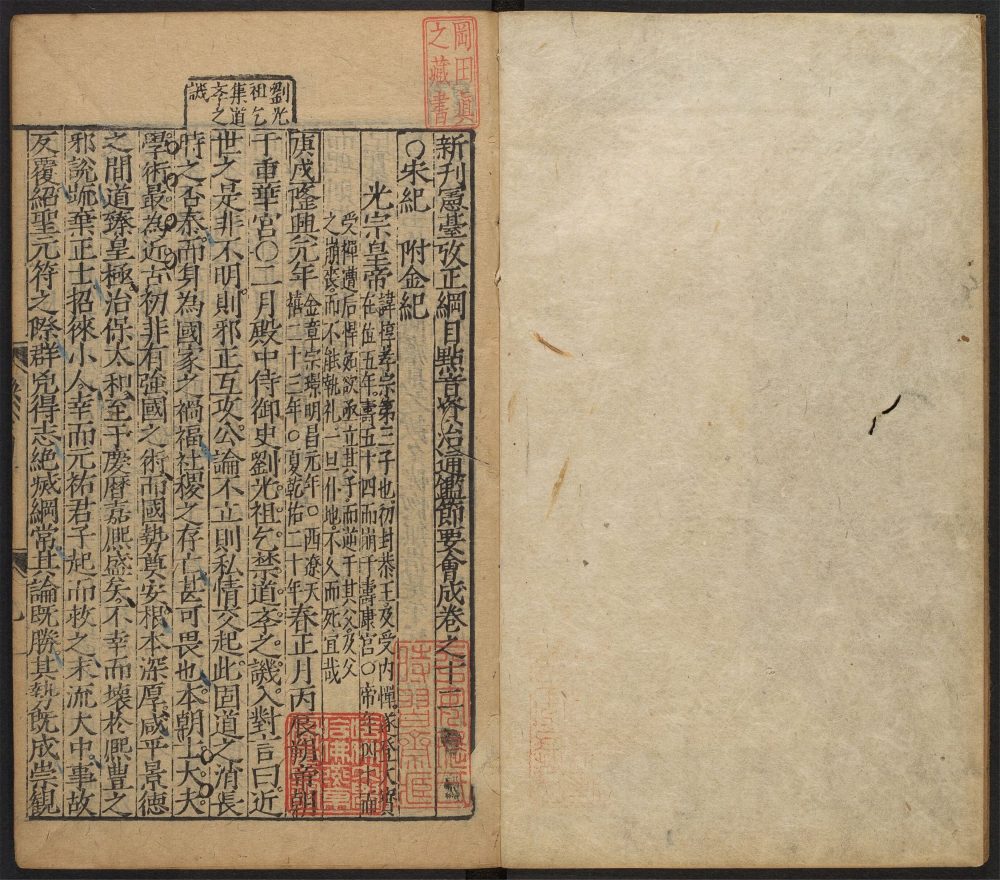 岡田眞
之藏書
劉光
祖乞
集道
李之
譏
新刊憲臺攷正綱目點音資治通鑑節要會成卷之十二
○宋紀　附金紀
光宗皇帝
諱惇孝宗第三子也初封恭王及受内禪遂登大寶
在位五年壽五十四而崩于壽康宮○帝年四十而
受禪遭后悍妬欲承立其子而逆于其父及父
之崩喪而不能執礼一旦仆地不久而死宜哉
庚戌隆興元年
金章宗璟明昌元年○西遼天
禧二十三年○夏乾祐二十年
春正月丙辰朔帝朝
于重華宮○二月殿中侍御史劉光祖乞禁道李之譏入對言曰近
世之是非不明則邪正互攻公論不立則私情交起此固道之消長
時之否泰而身為國家之禍福社稷之存亡甚可畏也本朝士大夫
學術最為近古初非有強國之術而國勢奠安根本深厚咸平景德
之間道臻皇極治保太和至于慶曆嘉熙盛矣不幸而壞於熙豊之
邪說踈棄正士招徠小人幸而元祐君子起而救之末流大中事故
反覆紹聖元符之際群兇得志絶滅綱常其論既勝其勢既成崇觀